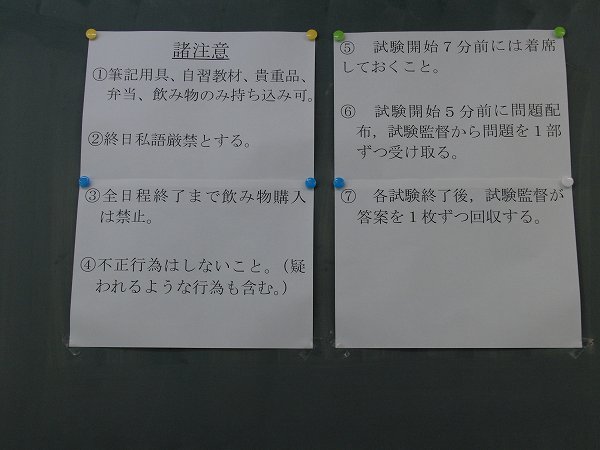 諸注意
①筆記用具、自習教材、貴重品、
弁当、飲み物のみ持ち込み可。
②終日私語厳禁とする。
③全日程終了まで飲み物購入
は禁止。
④不正行為はしないこと。（疑
われるような行為も含む。）
⑤　試験開始７分前には着席
しておくこと。
⑥　試験開始５分前に問題配
布，試験監督から問題を１部
ずつ受け取る。
⑦　各試験終了後，試験監督が
答案を１枚ずつ回収する。